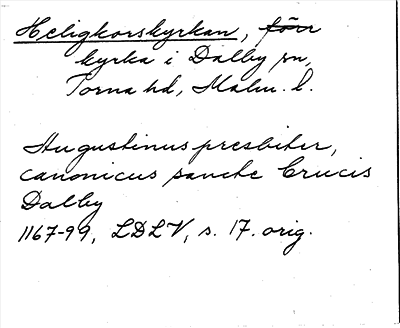 Heligkorskyrkan, förr
kyrka i Dalby sn,
Torna hd, Malm. l.
Augustinus presbiter,
canonicus sancte Crucis
Dalby
1167-99, LDLV, s. 17. orig.